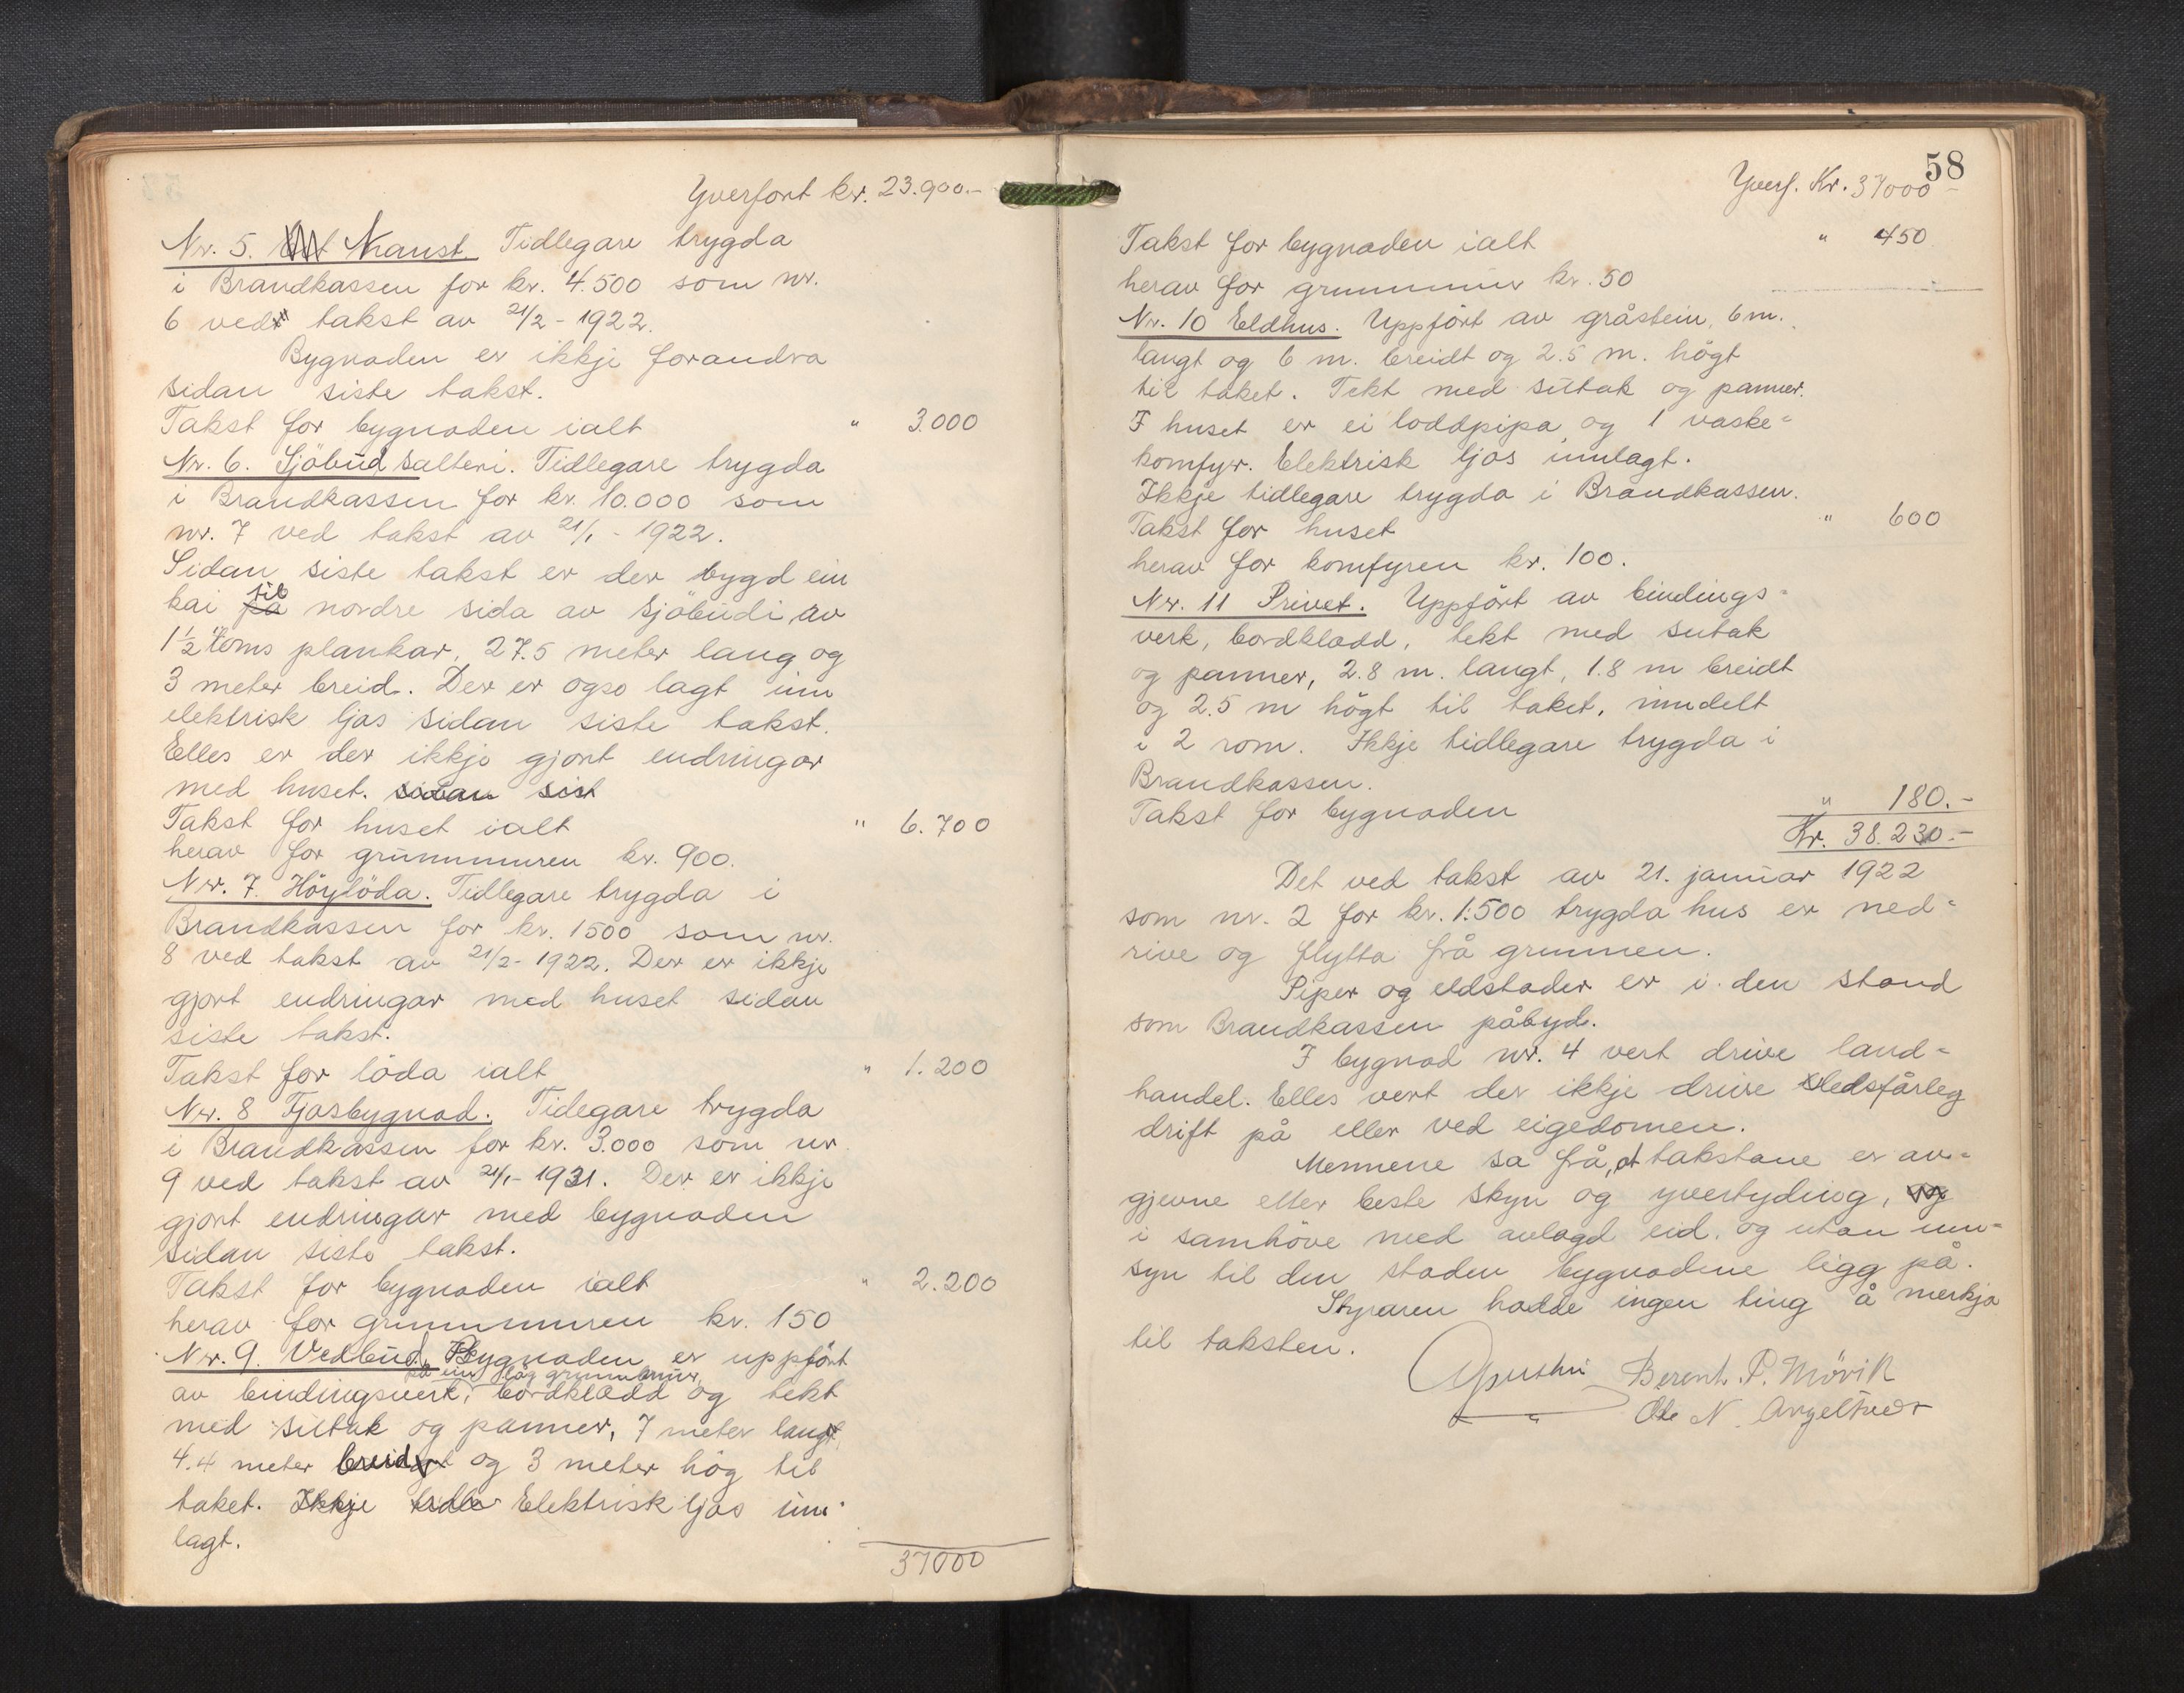 Yverført kr. 23.900.-
Nr. 5. Naust. Tidlegare trygda
i Brandkassen for kr. 4.500 som nr.
6 ved takst av 21/2 - 1922.
Bygnaden er ikkje forandra
sidan siste takst.
Takst for bygnaden ialt " 3.000
Nr. 6. Sjöbud salteri. Tidlegare trygda
i Brandkassen for kr. 10.000 som
nr. 7 ved takst av 21/1 - 1922.
Sidan siste takst er der bygd ein
kai til nordre sida av sjöbudi av
1 1/2" toms plankar, 27.5 meter lang og
3 meter breid. Der er ogso lagt inn
elektrisk ljos sidan siste takst.
Elles er der ikkje gjort endringar
med huset. sidan sist
Takst for huset ialt " 6.700
herav for grunnmuren kr. 900.
Nr. 7. Höylöda. Tidlegare trygda i
Brandkassen for kr. 1500 som nr.
8 ved takst av 21/2 - 1922. Der er ikkje
gjort endringar med huset sidan
siste takst.
Takst for löda ialt " 1.200
Nr. 8 Fjosbygnad. Tidegare trygda
i Brandkassen for kr. 3.000 som nr
9 ved takst av 21/1 - 1931. Der er ikkje
gjort endringar med bygnaden
sidan siste takst.
Takst for bygnaden ialt " 2.200
herav for grunnmuren kr. 150
Nr. 9. Vedbud. Bygnaden er uppført
på ein låg grunnmur
av bindingsverk, bordklædd og tekt
med sutak og panner, 7 meter lang
4.4 meter breid og 3 meter hög til
taket. Ikkje tidle Elektrisk ljos inn-
lagt.
37000
58
Yverf. Kr. 37000 -
Takst for bygnaden ialt " 450
herav for grunnmur kr. 50
Nr. 10 Eldhus. Uppfört av gråstein, 6 m.
langt og 6 m. breidt og 2.5 m. högt
til taket. Tekt med sutak og panner.
I huset er ei loddpipa og 1 vaske-
komfyr. Elektrisk ljos innlagt.
Ikkje tidlegare trygda i Brandkassen.
Takst for huset " 600
herav for komfyren kr. 100.
Nr. 11 Privet. Uppfört av bindings-
verk, bordklædd, tekt med sutak
og panner, 2.8 m. langt, 1.8 m breidt
og 2.5 m högt til taket, inndelt
i 2 rom. Ikkje tidlegare trygda i
Brandkassen.
Takst for bygnaden " 180.-
Kr. 38.230.-
Det ved takst av 21. januar 1922
som nr. 2 for kr. 1.500 trygda hus er ned-
rive og flytta frå grunnen.
Piper og eldstader er i den stand
som Brandkassen påbyd.
I bygnad nr. 4 vert drive land-
handel. Elles vert der ikkje drive eldsfårleg
drift på eller ved eigedomen.
Mennene sa frå, at takstane er av-
gjevne etter beste skyn og yvertyding,
i samhöve med avlagd eid, og utan inn-
syn til den staden bygnadene ligg på.
Styraren hadde ingen ting å merkja
til taksten.
Berent P. Mövik
Ole N. Angeltveit